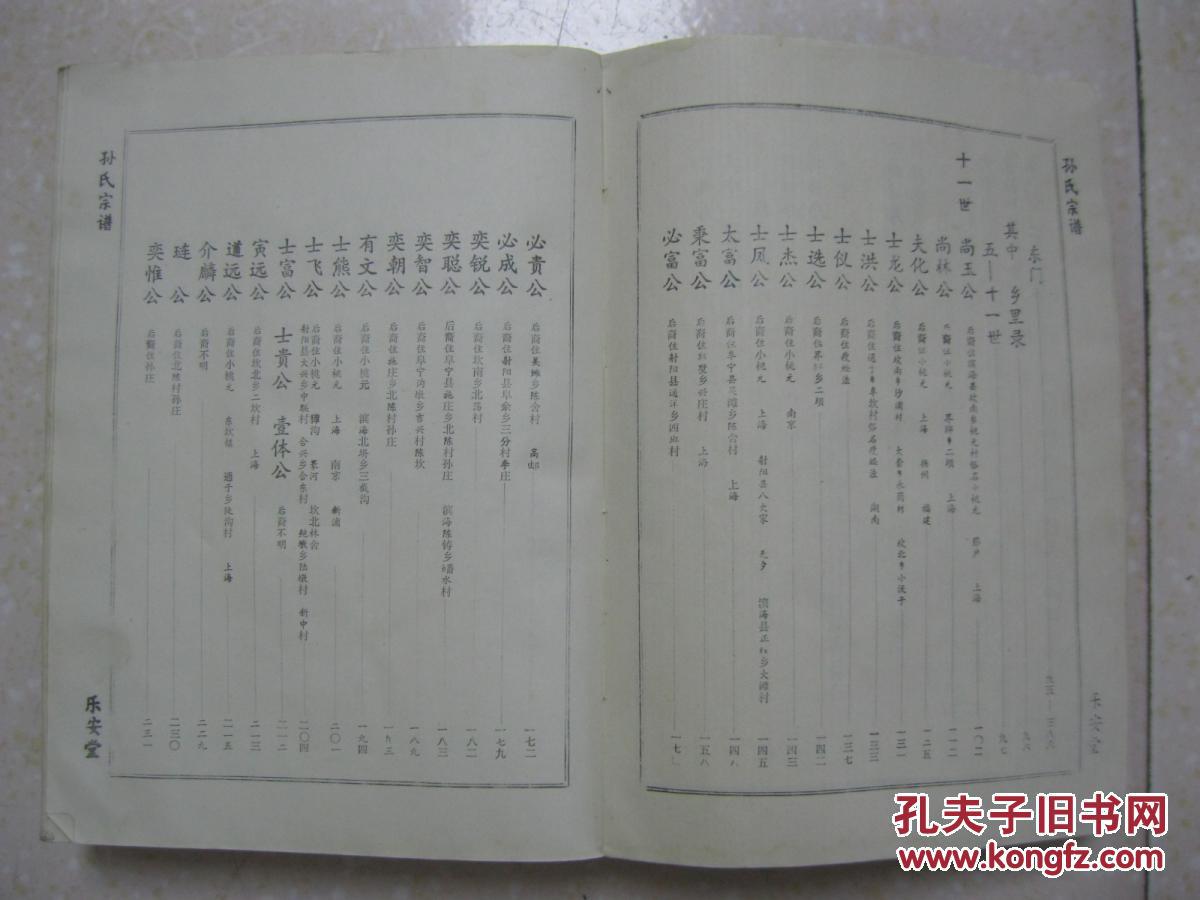 孙氏宗谱
乐安堂
东门 九五—三八六
其中 乡里录 九六
五—十一世 九七
十一世 尚玉公 后裔住滨海县坎南乡桃元村俗名小桃元 上海 一〇二
尚林公 后裔住小桃元 界牌乡二坝 上海 一一二
夫化公 后裔住小桃元 上海 扬州 福建 一二五
士龙公 后裔住坎南乡沙浦村 坎北乡小沃子 一三一
士洪公 后裔住通于乡阜坎村俗名 湖南 一三三
士仪公 一三七
士选公 后裔住界牌乡二坝 一四二
士杰公 后裔住小桃元 南京 一四三
士凤公 后裔住小桃元 上海 射阳县八大家 滨海县正红乡大滩村 一四五
太富公 后裔住阜宁县吴滩乡陈舍村 上海 一四八
秉富公 后裔住 兴庄村 上海 一五八
必富公 后裔住射阳县通洋乡 一七
必贵公 后裔住吴滩乡陈舍村 高邮 一七二
必成公 后裔住射阳县阜余乡三分村李庄 一七九
奕锐公 后裔住坎南乡北荡村 一八二
奕聪公 后裔住阜宁县施庄乡北陈村孙庄 滨海陈铸乡 水村 一八三
奕智公 后裔住阜宁沟墩乡吉兴村陈坎 一八九
奕朝公 后裔住施庄乡北陈村孙庄 一九三
有文公 后裔住小桃元 滨海北坍乡三截沟 一九四
士熊公 后裔住小桃元 上海 南京 新浦 二〇一
士飞公 后裔住小桃元 獐沟 条河 坎北林舍
射阳县大兴乡中联村 合兴乡合东村 陆墩村 新中村 二〇四
士富公 士贵公 壹体公 后裔不明 二一二
寅远公 后裔住坎北乡二坎村 上海 二一三
道远公 后裔住小桃元 东坎镇 通于乡陡沟村 上海 二一五
介麟公 后裔不明 二二九
琏公 后裔住北陈村孙庄 二三〇
奕惟公 后裔住孙庄 二三一
孙氏宗谱
乐安堂
孔夫子旧书网
www.kongfz.com